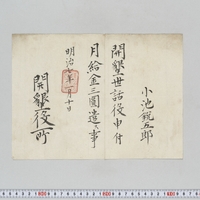 小池鋭五郎
開墾世話役申付
月給金三圓遣ス事
明治七年一月十日
開墾役所